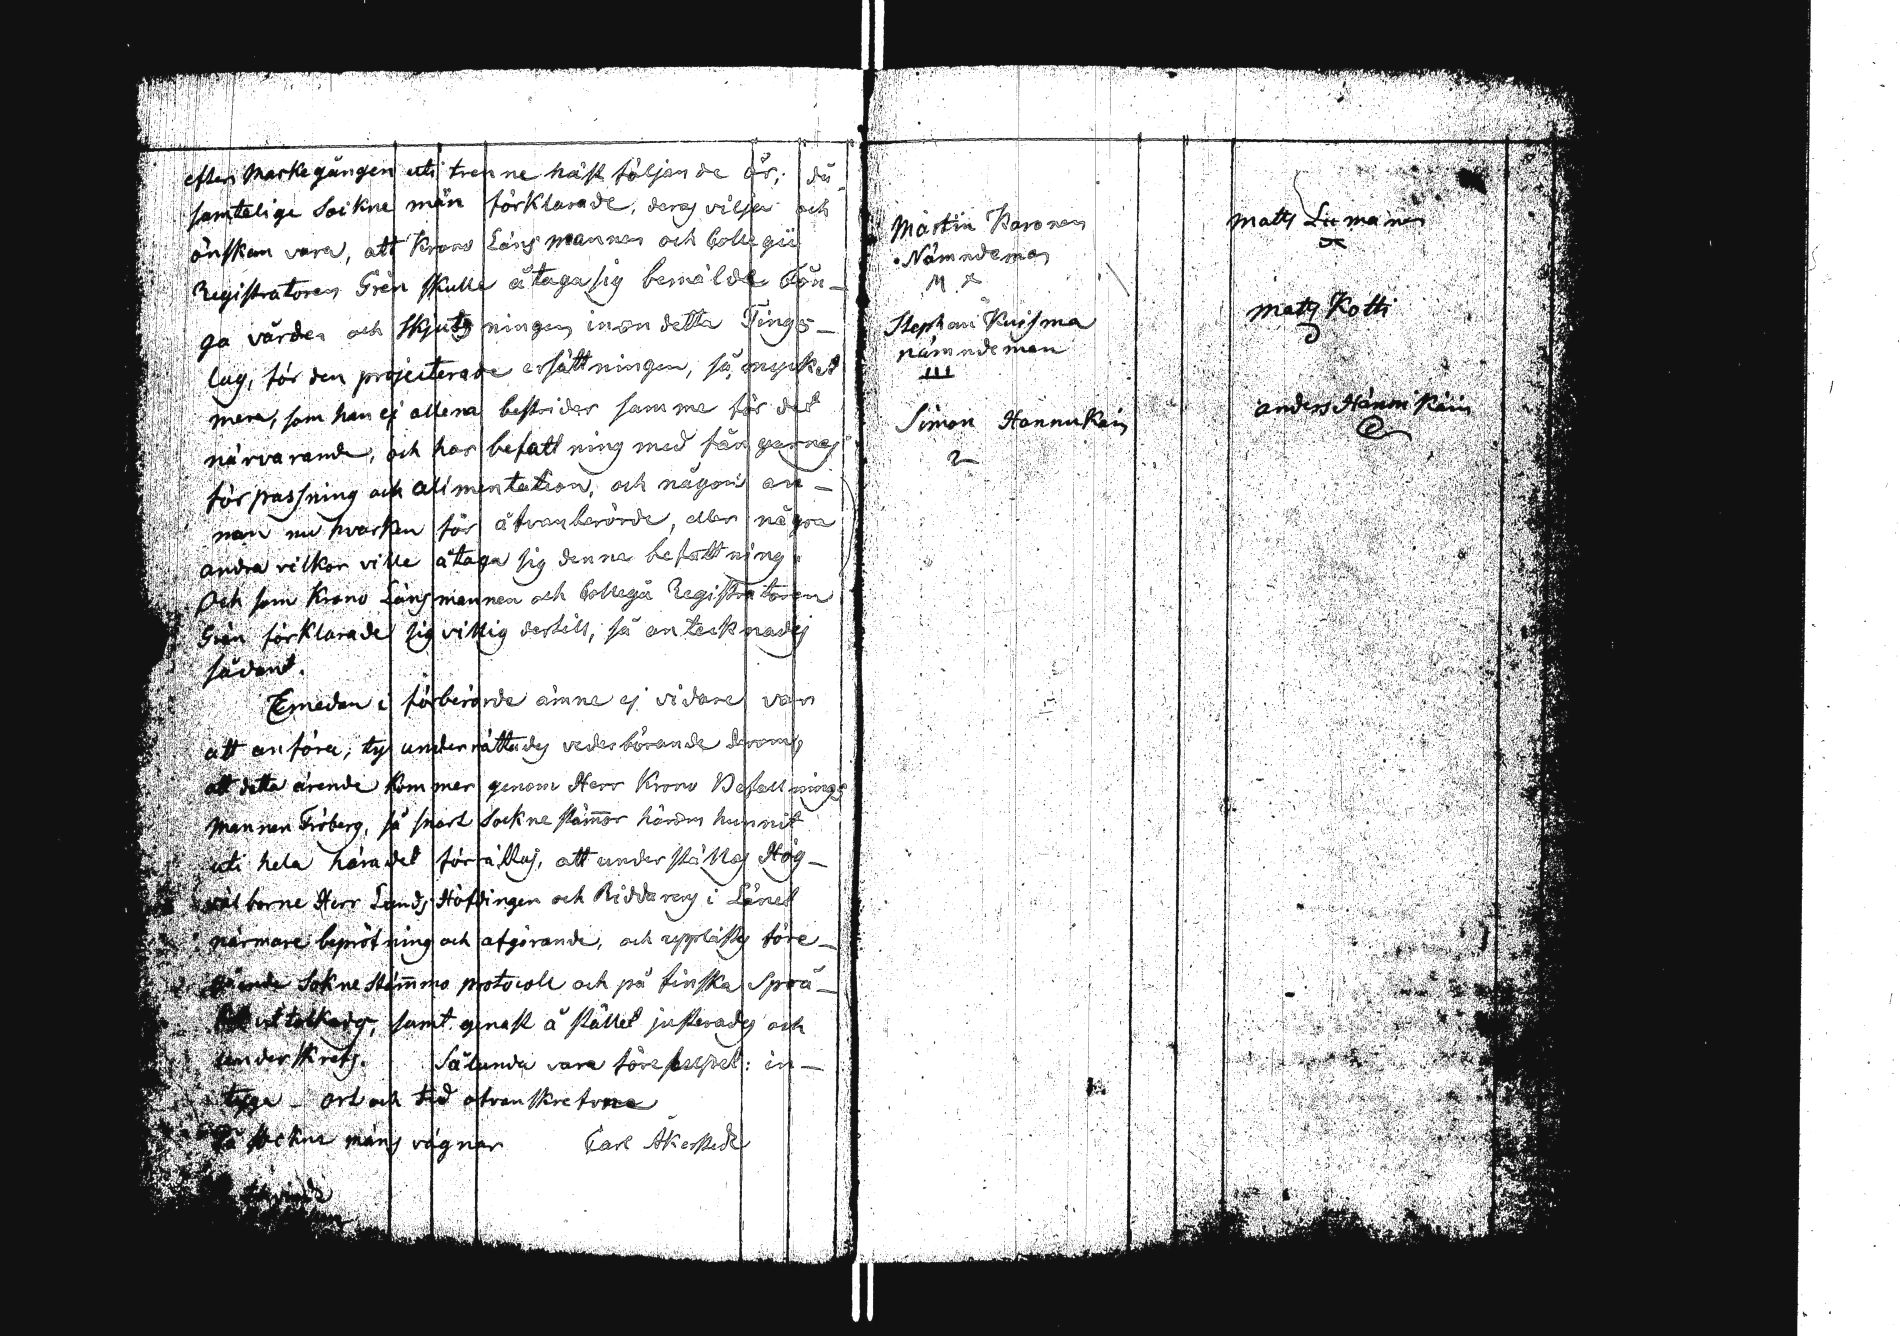 efter Markegången uti trenne näst följande år; då
samtelige Sockne män förklarade, deras vilja och
önskan vara, att Krono Länsmannen och Collegii
Registratoren Grén skulle åtaga sig bemälde Fån-
ga vården och skjutsningen inom detta Tings-
lag, för den projecterade ersättningen, så mycket
mera, som han ej allena bestrider samme för det
närvarande, och har befattning med fångarnas
förpassning och alimentation, och någon an-
nan nu hvarken för åfvanberörde, eller några
andra vilkor ville åtaga sig denne befattning.
Och som Krono Länsmannen och Collegii Registratoren
Grén förklarade sig villig dertill, så antecknades
sådant.
Emedan i förberörde ämne ej vidare var
att anföra, ty underrättades vederbörande derom,
att detta ärende kommer genom Herr Krono Befallnings
mannen Firberg, så snart Sockne stämmor härom hunnit
uti hela häradet förrättas, att underställas Hög-
välborne Herr Lands Höfdingen och Riddarens i Länet
närmare bepröfning och afgörande, och upplästes före-
gående Sokne stämmo protocoll och på finska Språ-
ket uttolkades, samt genast å stället justerades och
underskrefs. Sålunda vara förelupet: in-
tyga _ ort och tid ofvanskrefvne
På Sockne mäns vägnar Carl Åkerstedt
Martin Karonen
Nämndeman
Mats Limanen
Stephan Kuisma
nämndeman
III
Mats Kotti
Simon Hannukain
anders Hannikain